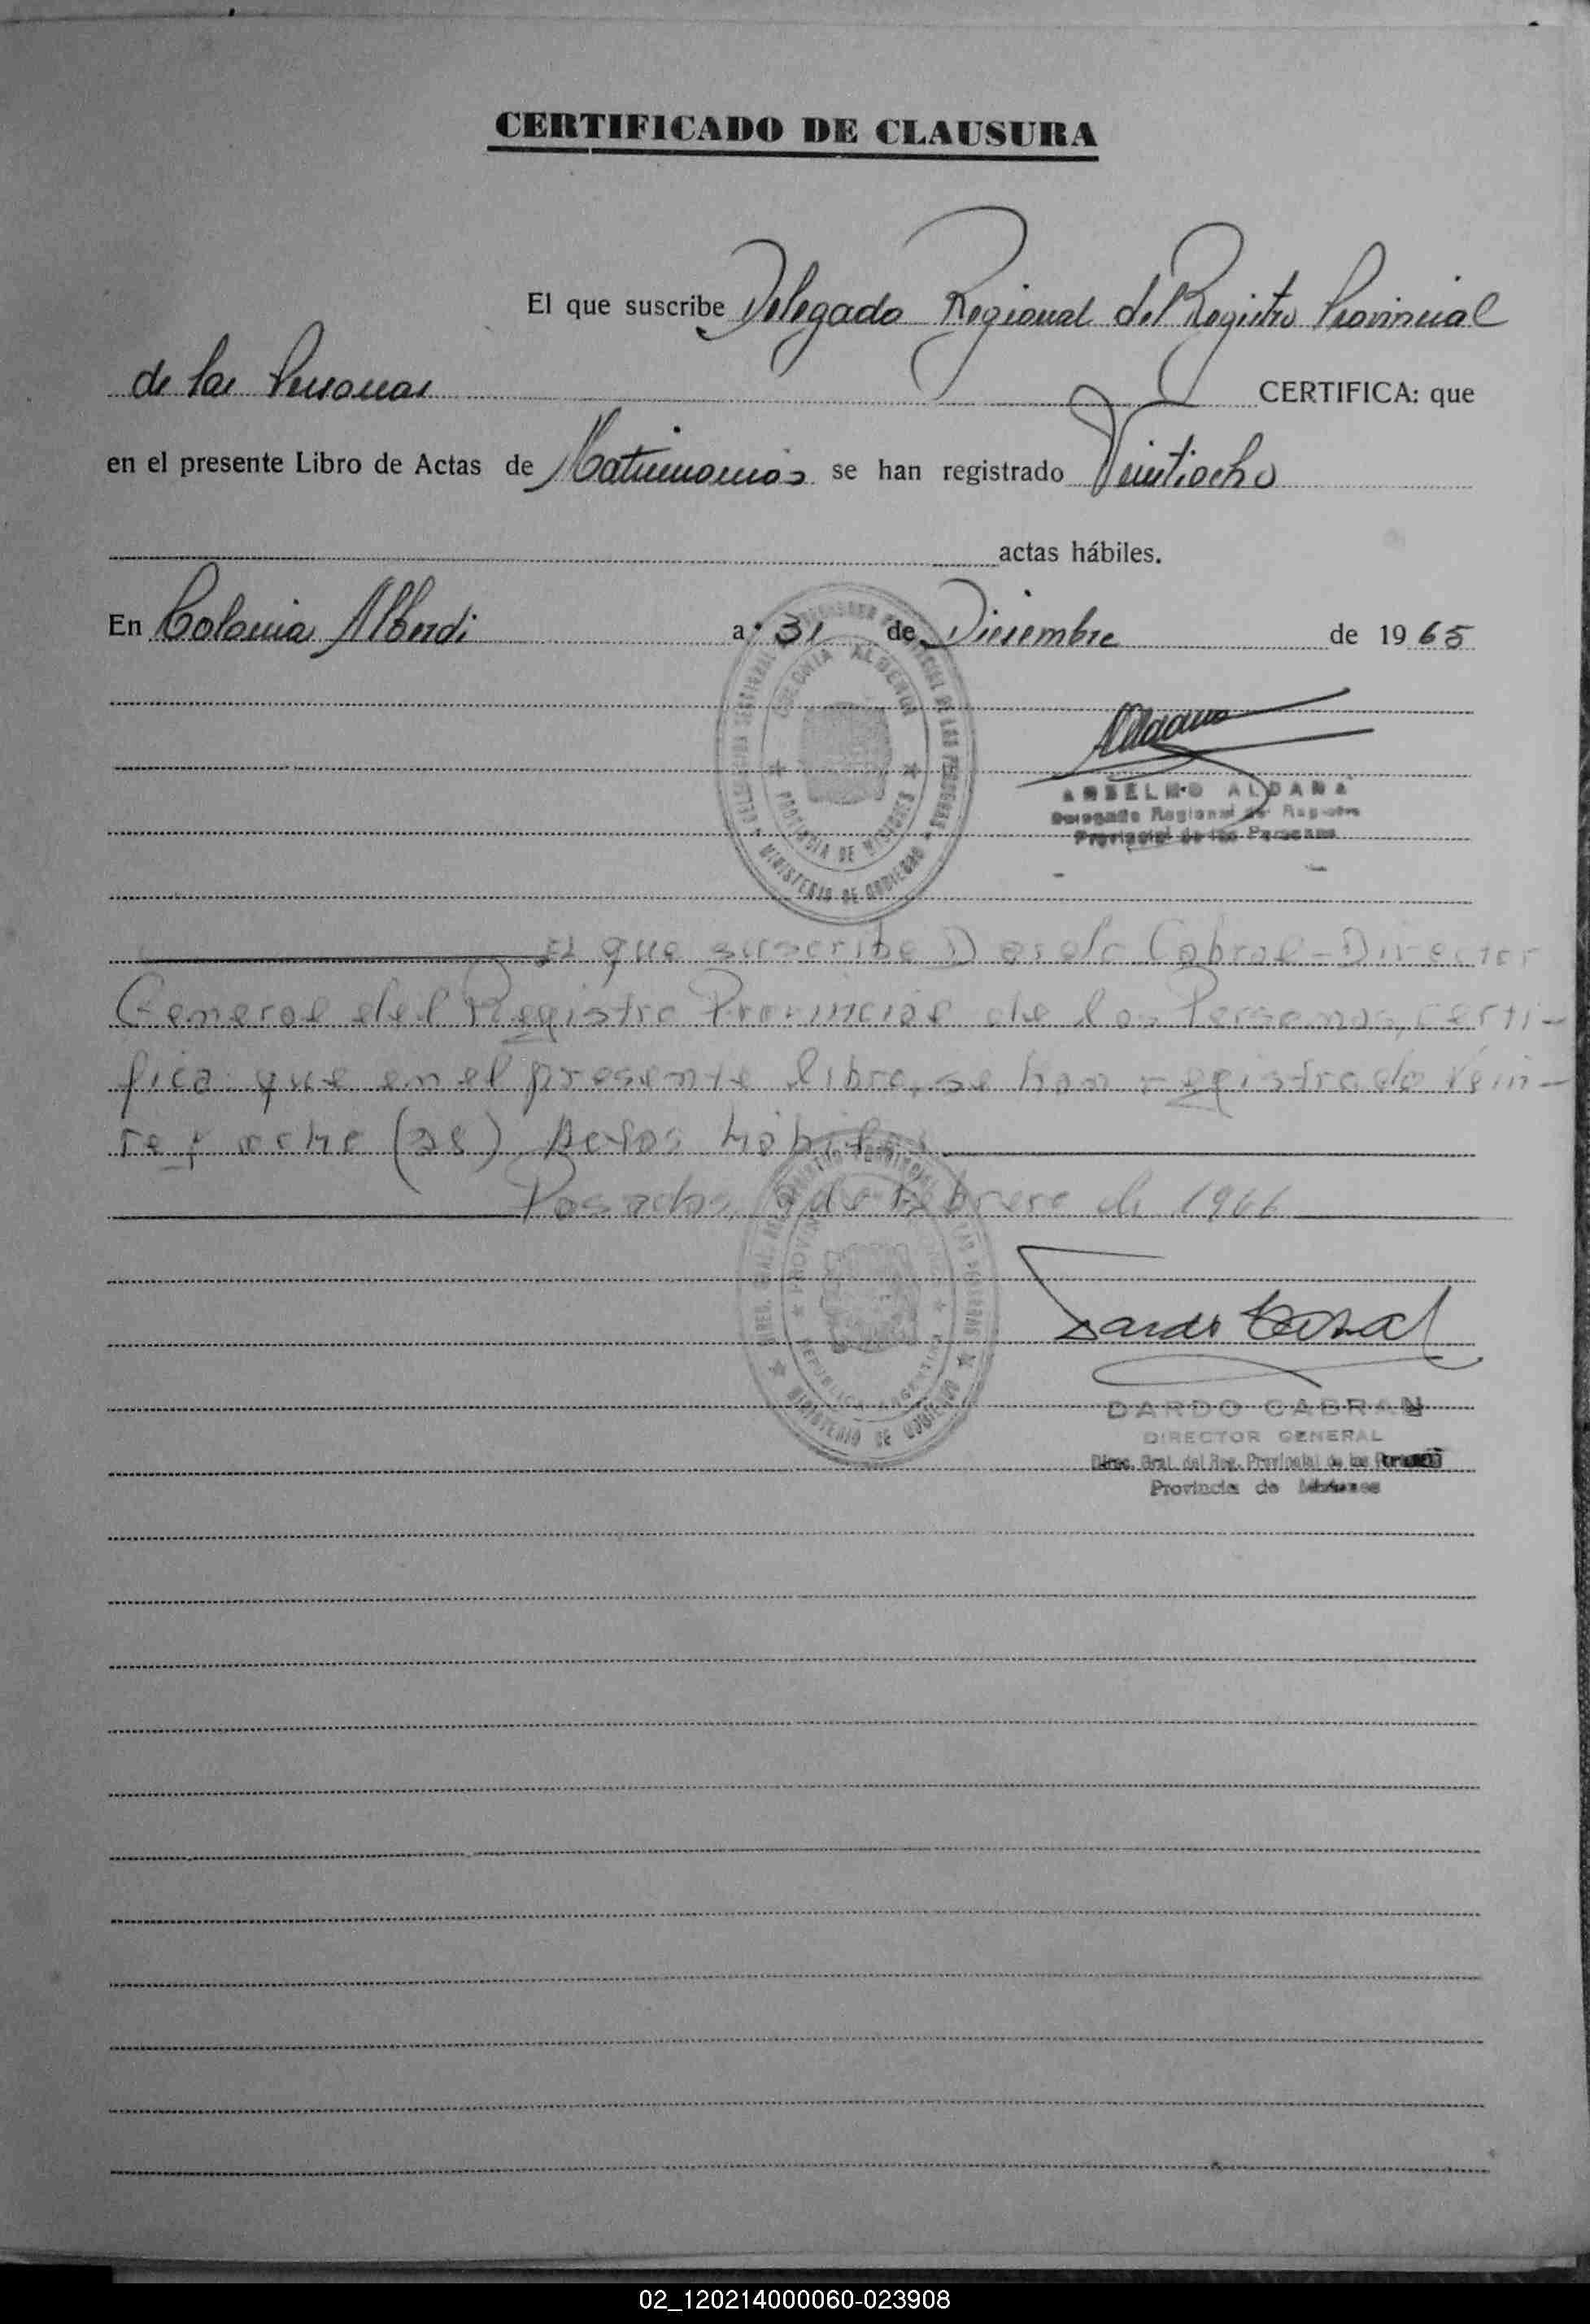 CERTIFICADO DE CLAUSURA
El que suscribe Delegado Regional del Registro Provincial
de las Personas CERTIFICA: que
en el presente Libro de Actas de Matrimonios se han registrado Veintiocho
actas hábiles.
En Colonia Alberdi a 31 de Diciembre de 1965
COLONIA ALBERDI
PROVINCIA DE MISIONES
MINISTERIO DE GOBIERNO
Aldana
ANSELMO ALDANA
Delegado Regional de Registro
Provincial de las Personas
El que suscribe Dardo Cabral - Director
General del Registro Provincial de las Personas, certi-
fica: que en el presente libro, se han registrado Vein-
te y ocho (28) Actas hábiles
Posadas, de Febrero de 1966
REPUBLICA ARGENTINA
MINISTERIO DE GOBIERNO
Dardo Cabral
DARDO CABRAL
DIRECTOR GENERAL
Direc. Gral. del Reg. Provincial de las Personas
Provincia de Misiones
02_120214000060-023908